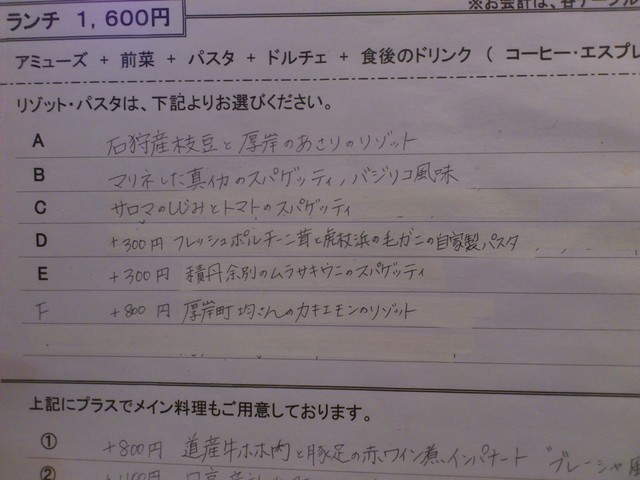 ※お会計は、各テーブル
ランチ 1,600円
アミューズ + 前菜 + パスタ + ドルチェ + 食後のドリンク ( コーヒー・エスプレ
リゾット・パスタは、下記よりお選びください。
A 石狩産枝豆と厚岸のあさりのリゾット
B マリネした真イカのスパゲッティ、バジリコ風味
C サロマのしじみとトマトのスパゲッティ
D +300円 フレッシュポルチーニ茸と虎杖浜の毛ガニの自家製パスタ
E +300円 積丹余別のムラサキウニのスパゲッティ
F +800円 厚岸町 均さんのカキエモンのリゾット
上記にプラスでメイン料理もご用意しております。
① +800円 道産牛ホホ肉と豚足の赤ワイン煮、インパナート "ブレーシャ風
②